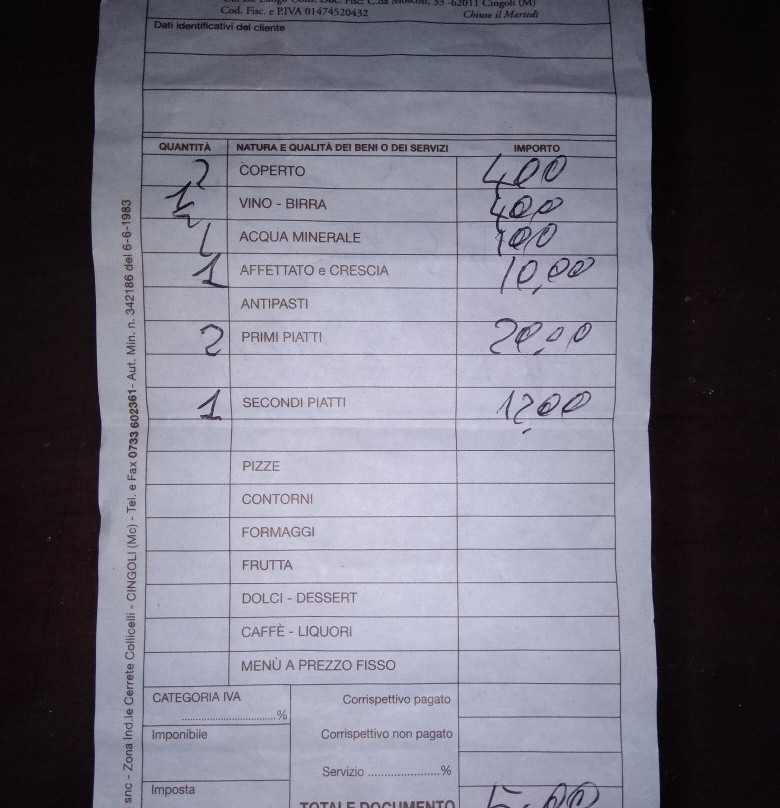 Cod. Fisc. e P.IVA 01474520432 Chiuso il Martedì
Dati identificativi del cliente
QUANTITÀ NATURA E QUALITÀ DEI BENI O DEI SERVIZI IMPORTO
2 COPERTO 4,00
VINO - BIRRA 4,00
1 ACQUA MINERALE 1,00
1 AFFETTATO e CRESCIA 10,00
ANTIPASTI
2 PRIMI PIATTI 20,00
1 SECONDI PIATTI 12,00
PIZZE
CONTORNI
FORMAGGI
FRUTTA
DOLCI - DESSERT
CAFFÈ - LIQUORI
MENÙ A PREZZO FISSO
CATEGORIA IVA Corrispettivo pagato
%
Imponibile Corrispettivo non pagato
Servizio ......................%
Imposta
TOTALE DOCUMENTO
snc - Zona Ind.le Cerrete Collicelli - CINGOLI (Mc) - Tel. e Fax 0733 602361 - Aut. Min. n. 342186 del 6-6-1983